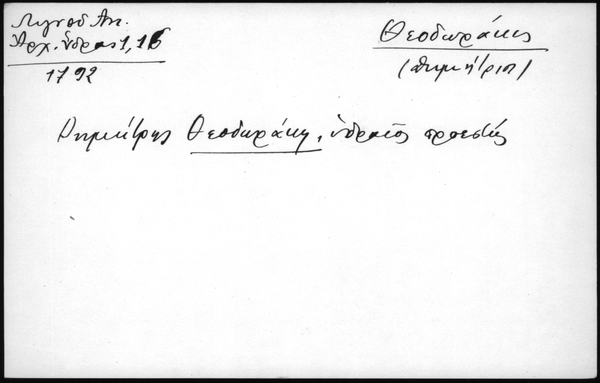 Λιγνοῦ Ἀν.
Ἀρχ. Ὕδρας 1, 16
1792
Θεοδωράκης
(Δημήτριος)
Δημήτρης Θεοδωράκη, ὑδραῖος προεστώς